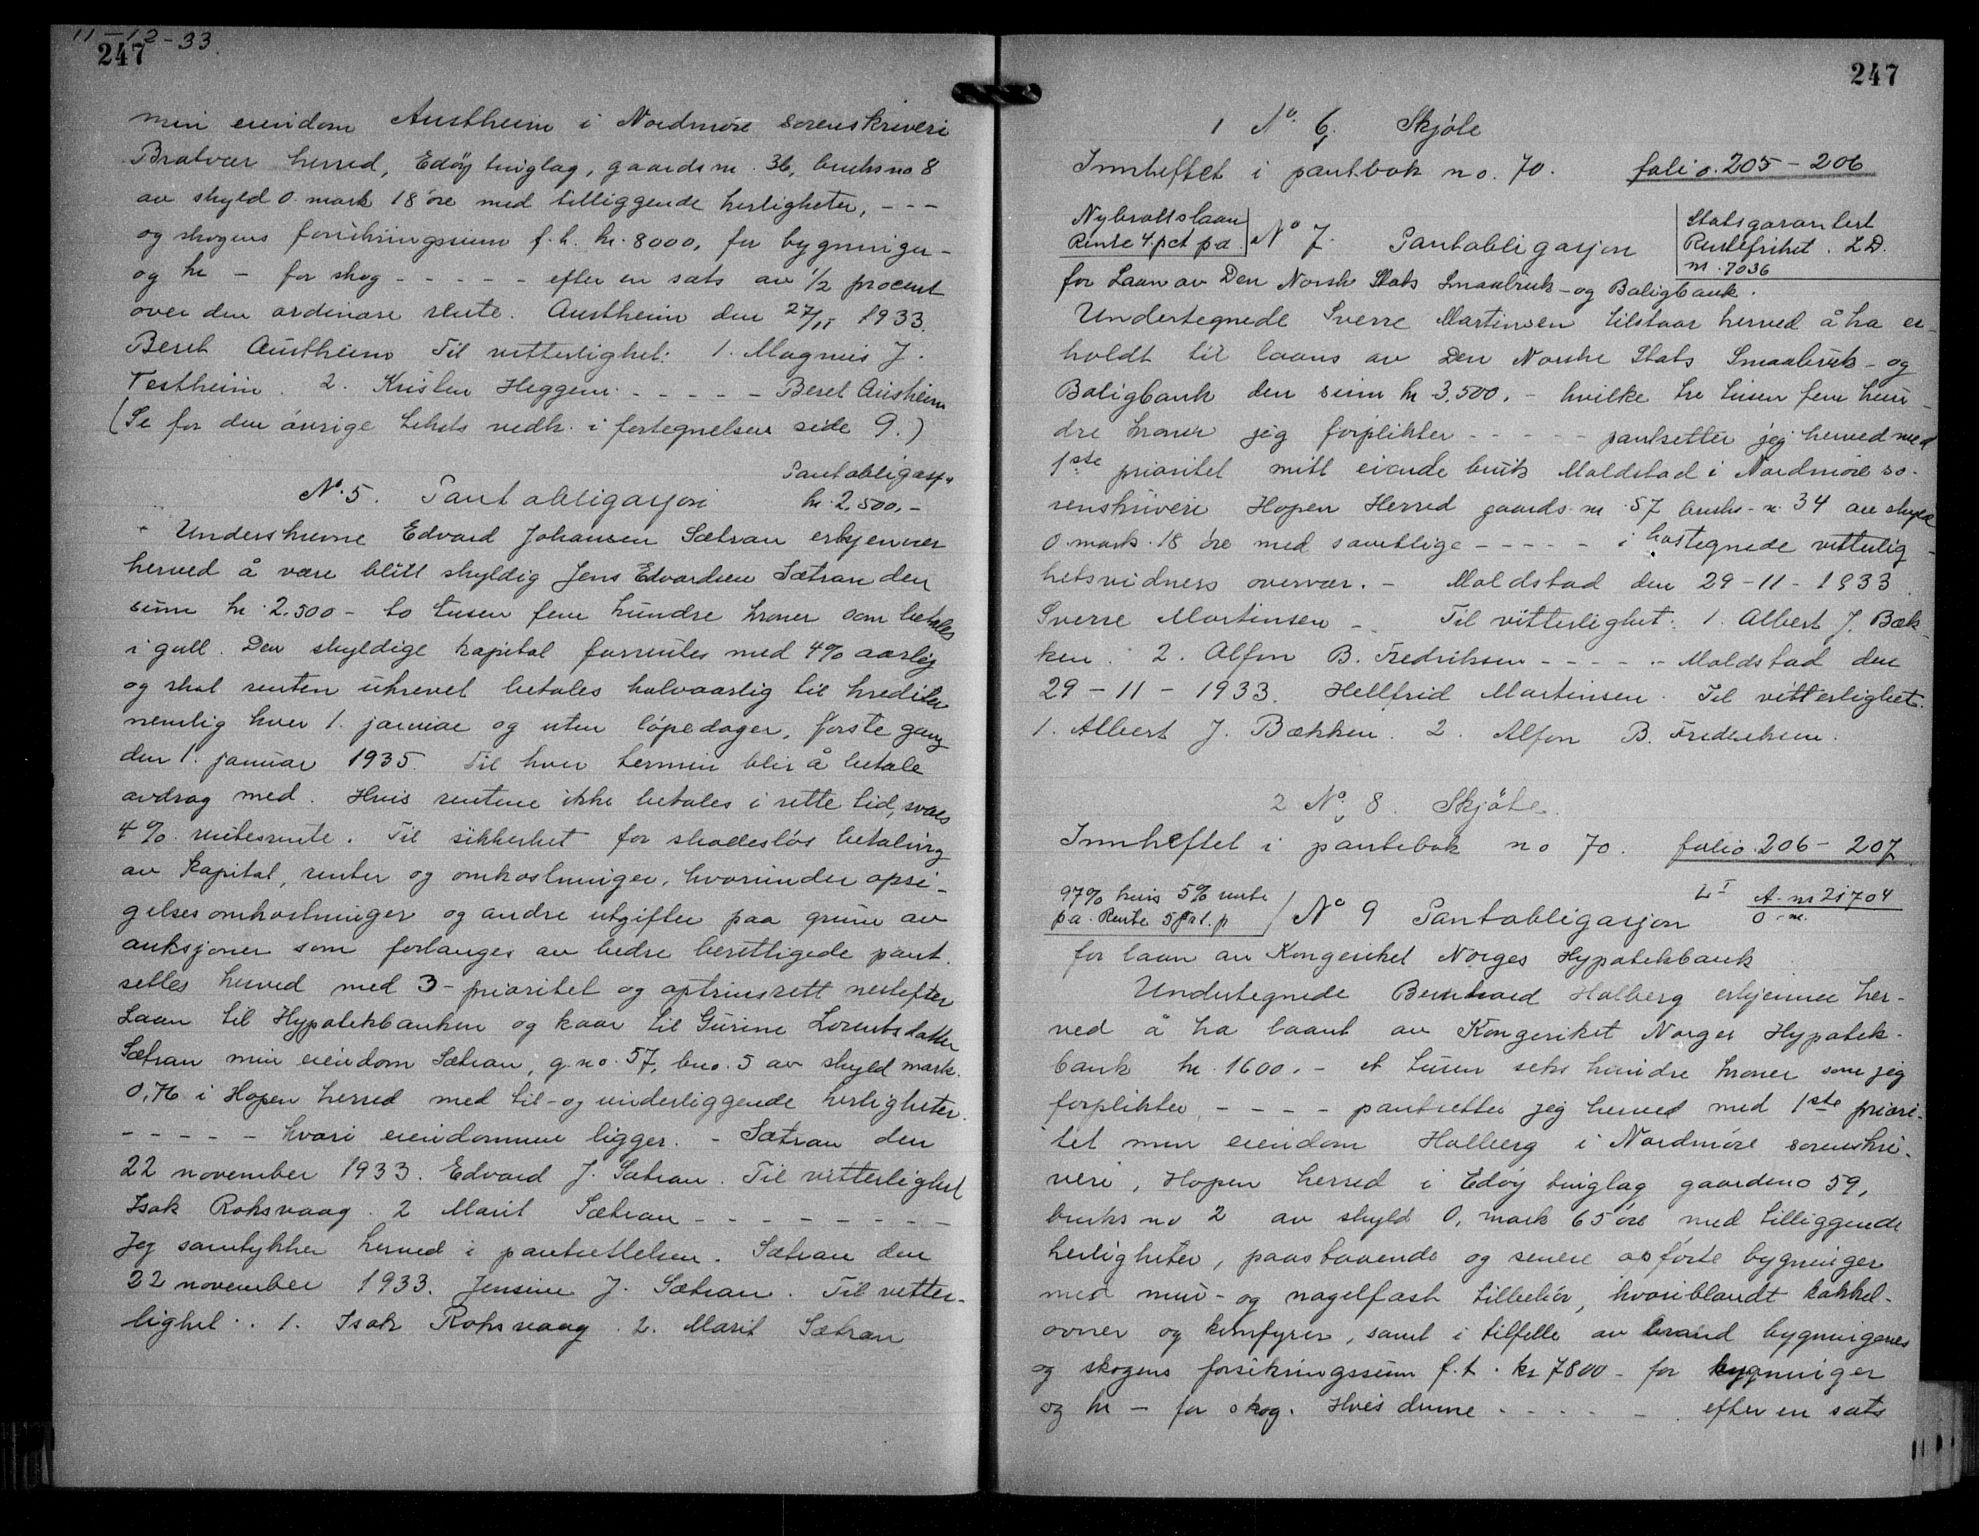 11-12-33.
247
min eiendom Austheim i Nordmøre sorenskriveri
Bratvær herred, Edøy tinglag, gaards nr. 36, bruks no 8
av skyld 0. mark 18 øre med tilliggende herligheter, - - -
og skogens forsikringssum f.t. kr. 8000, for bygninger -
og kr - for skog - - - - - efter en sats av 1/2 procent
over den ordinære rente. Austheim den 27/11 1933.
Beret Austheim Til vitterlighet: 1. Magnus J.
Testheim. 2. Kristen Heggem. - - - - - Beret Austheim
(Se for den øvrige teksts vedk. i fortegnelsen side 9.)
Pantobligasj.
No. 5. Pantobligasjon kr. 2.500,-
Underskrevne Edvard Johansen Sætran erkjenner
herved å være blitt skyldig Jens Edvardsen Sætran den
sum kr. 2.500 - to tusen fem hundre kroner som betales
i gull. Den skyldige kapital forrentes med 4% aarlig
og skal renten ukrevet betales halvaarlig til kreditor
nemlig hver 1. januar og uten løpedager, første gang
den 1. januar 1935. Til hver termin blir å betale
avdrag med. Hvis rentene ikke betales i rette tid, svares
4% rentesrente. Til sikkerhet for skadesløs betaling
av kapital, renter og omkostninger, hvorunder opsi-
gelsesomkostninger og andre utgifter paa grunn av
auksjoner som forlanges av bedre berettigede pant.
settes herved med 3 - prioritet og optrinsrett nestefter
Laan til Hypotekbanken og kaar til Gurine Lorentsdatter
Sætran min eiendom Sætran, g.no. 57, bno. 5 av skyld mark.
0,76 i Hopen herred med til- og underliggende herligheter.
- - - - - hvori eiendommen ligger. - Sætran den
22 november 1933. Edvard J. Sætran. Til vitterlighet
Isak Roksvaag. 2 Marit Sætran - - - - - - - -
Jeg samtykker herved i pantsettelsen. Sætran den
22 november 1933. Jensine J. Sætran. Til vitter-
lighet. 1. Isak Roksvaag. 2. Marit Sætran
247
1 No. 6. Skjøte
Innheftet i pantbok no. 70. folio. 205-206
Nybrottslaan
Rente 4. pct p a
No 7. Pantobligasjon
Statsgarantert
Rentefrihet. L.D.
nr. 7036
for Laan av Den Norske Stats Smaabruk- og Boligbank.
Undertegnede Sverre Martinsen tilstaar herved å ha er-
holdt til laans av Den Norske Stats Smaabruk- og
Boligbank den sum kr 3.500. - hvilke tre tusen fem hun-
dre kroner jeg forplikter - - - - - pantsetter jeg herved med
1ste prioritet mitt eiende bruk Moldstad i Nordmøre so-
renskriveri Hopen Herred gaards-nr 57 bruks-nr. 34 av skyld
0 mark. 18 øre med samtlige - - - - - i hostegnede vitterlig-
hetsvidners overvær. - Moldstad den 29-11-1933.
Sverre Martinsen - Til vitterlighet: 1. Albert J. Bæk-
ken. 2. Alfon B. Fredriksen - - - - - Moldstad den
29-11-1933. Hellfrid Martinsen. Til vitterlighet:
1. Albert J. Bækken. 2. Alfon B. Frederiksen.
2 No 8. Skjøte.
Innheftet i pantebok no 70. folio. 206-207.
97% hvis 5% rente
p a. Rente 5 pct. p
No 9 Pantobligasjon
L I A - nr 21704
O - nr.
for laan av Kongeriket Norges Hypotekbank
Undertegnede Bernhard Holberg erkjenner her-
ved å ha laant av Kongeriket Norges Hypotek-
bank kr. 1600. - et tusen seks hundre kroner som jeg
forplikter - - - - pantsetter jeg herved med 1ste priori-
tet min eiendom Holberg i Nordmøre sorenskri-
veri, Hopen herred i Edøy tinglag gaardsno 59,
bruks no 2 av skyld 0, mark 65 øre med tilliggende
herligheter, paastaaende og senere opførte bygninger
med mur- og nagelfast tilbehør, hvoriblandt kakkel-
ovner og komfyrer, samt i tilfelle av brand bygningenes
og skogens forsikringssum f.t. kr 7800 - for bygninger
og kr - for skog. Hvis denne - - - - - efter en sats